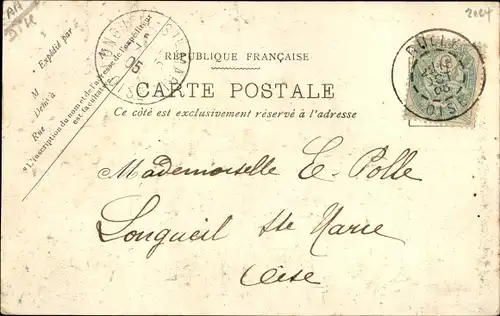 2024
Expédié par
M
Demt à
Rue
*L'inscription du nom et de l'adresse de l'expéditeur
est facultative.
RÉPUBLIQUE FRANÇAISE
CARTE POSTALE
Ce côté est exclusivement réservé à l'adresse
OISE
Mademoiselle E. Polle
Longueil Ste Marie
Oise